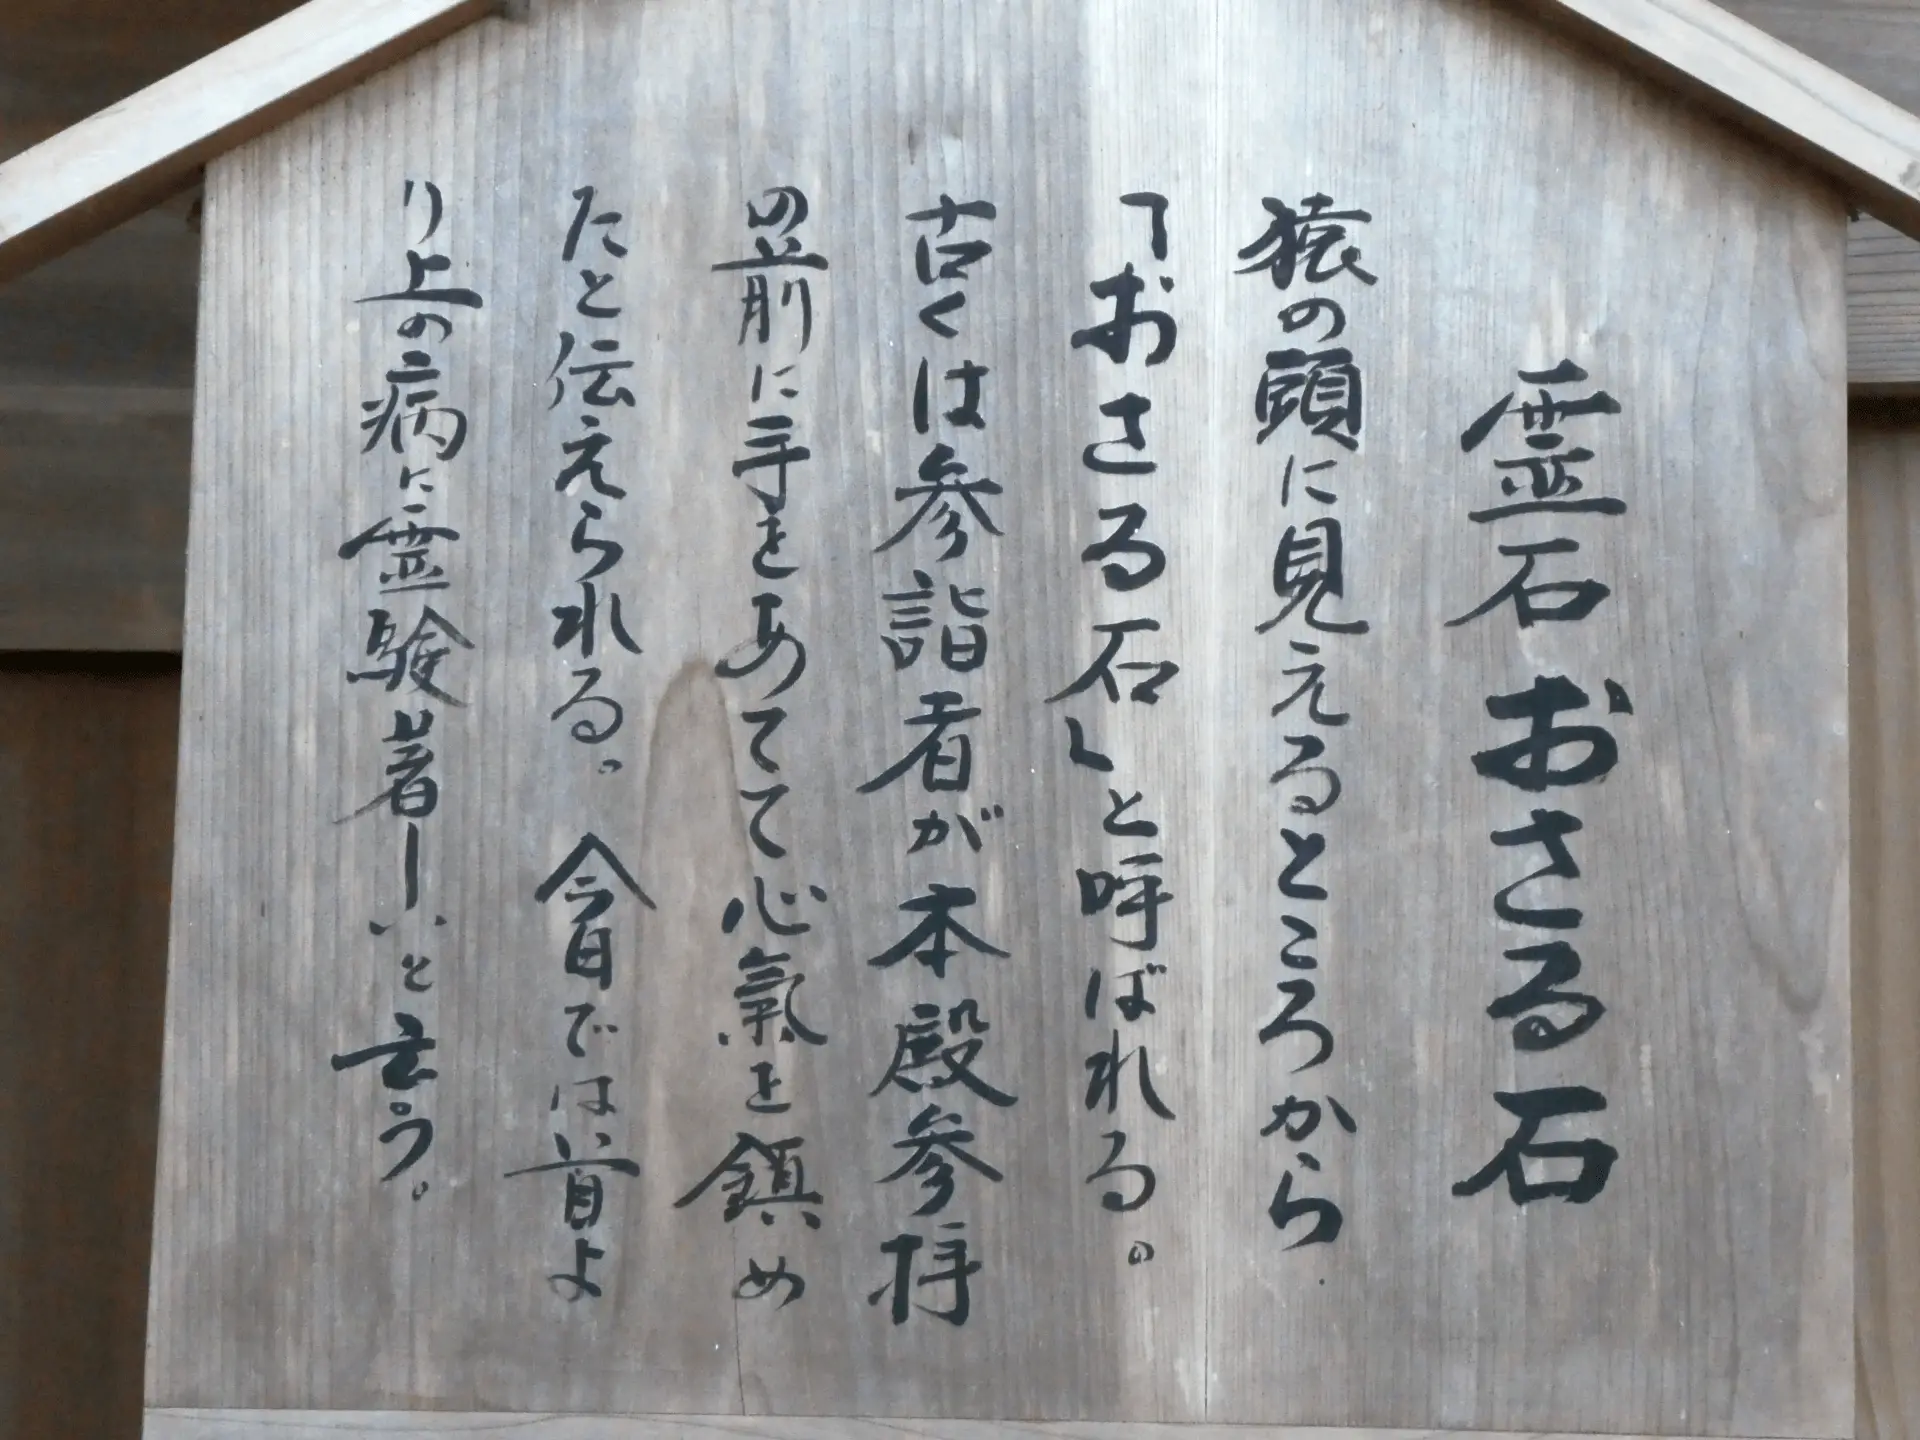 霊石 おさる石
猿の頭に見えるところから
「おさる石」と呼ばれる。
古くは参詣者が本殿参拝
の前に手をあてて心氣を鎮め
たと伝えられる。今日では首よ
り上の病に霊験著しいと言う。